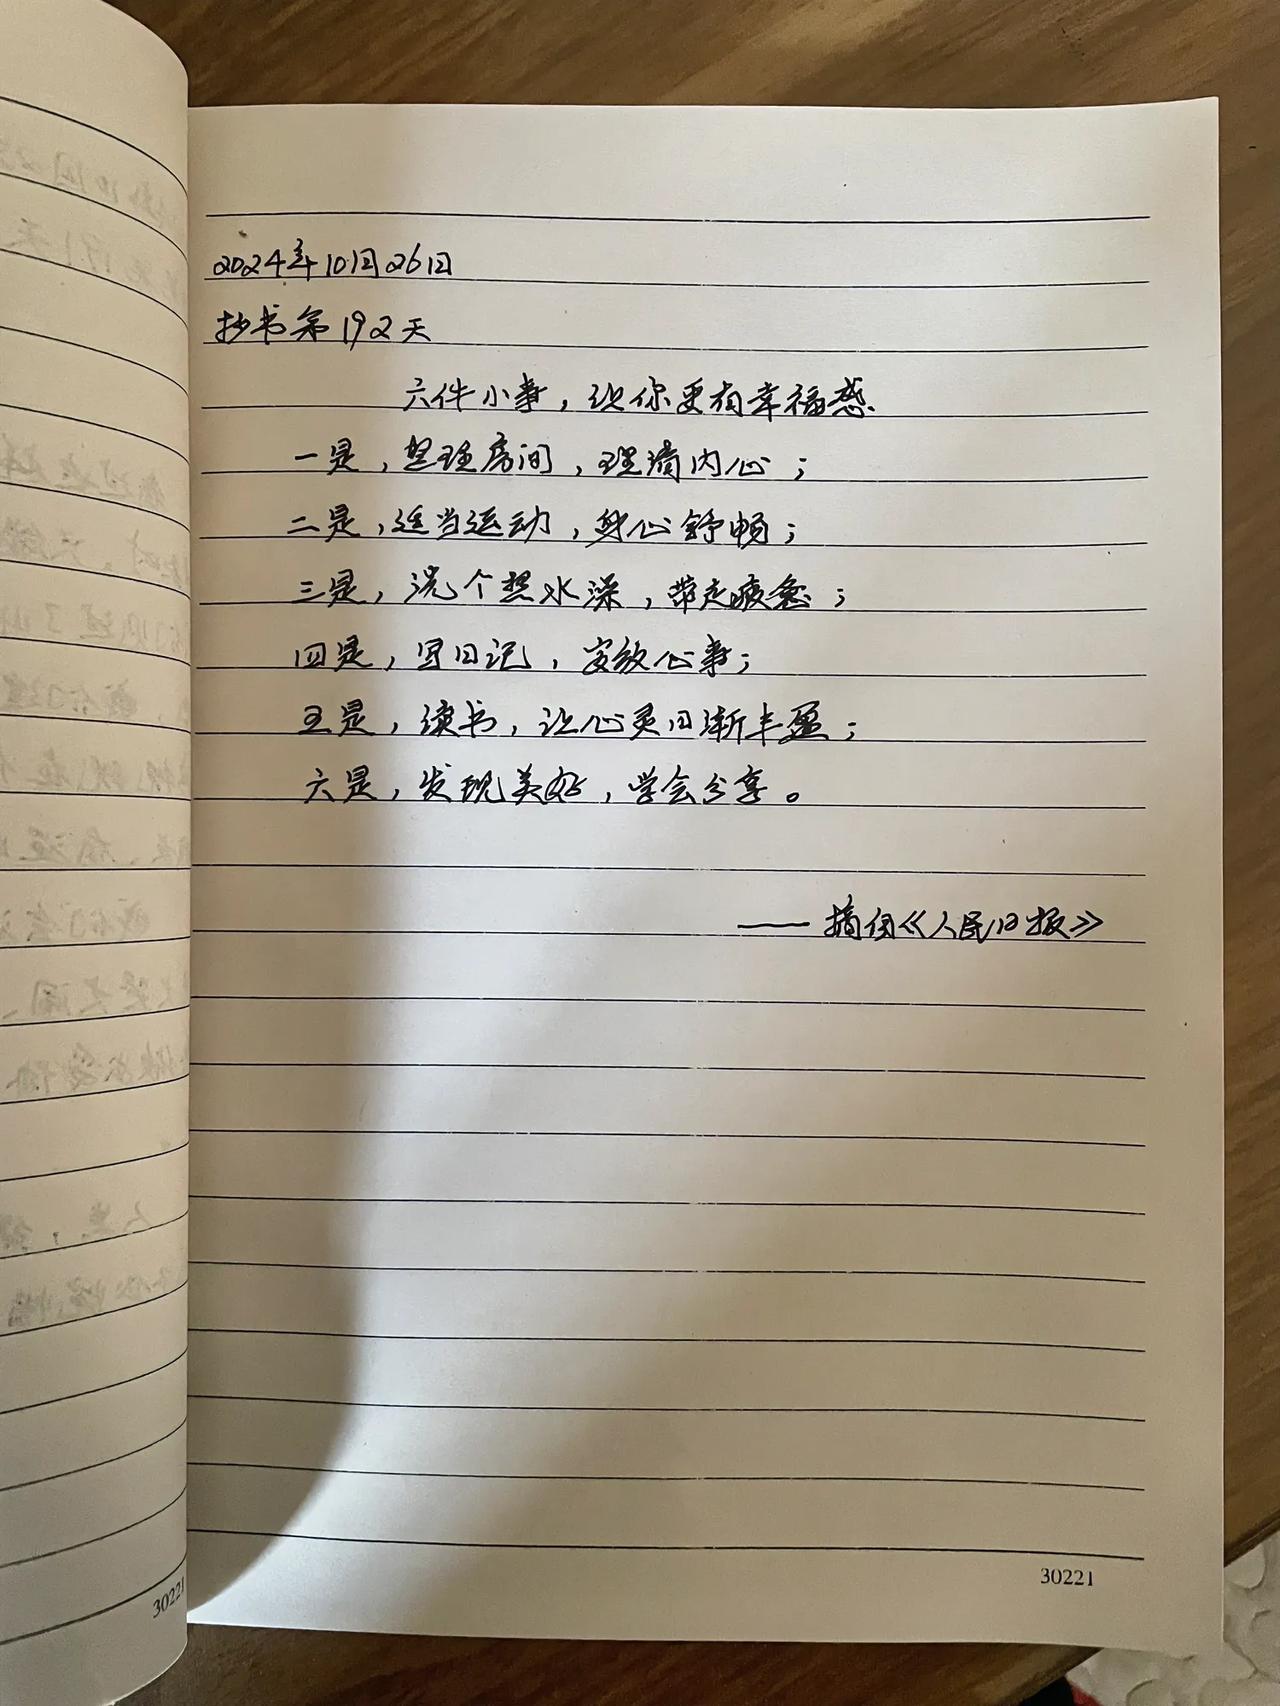 2024年10月26日
抄书第192天
六件小事，让你更有幸福感
一是，整理房间，理清内心；
二是，适当运动，身心舒畅；
三是，洗个热水澡，带走疲惫；
四是，写日记，安放心事；
五是，读书，让心灵日渐丰盈；
六是，发现美好，学会分享。
——摘自《人民日报》
30221
30221